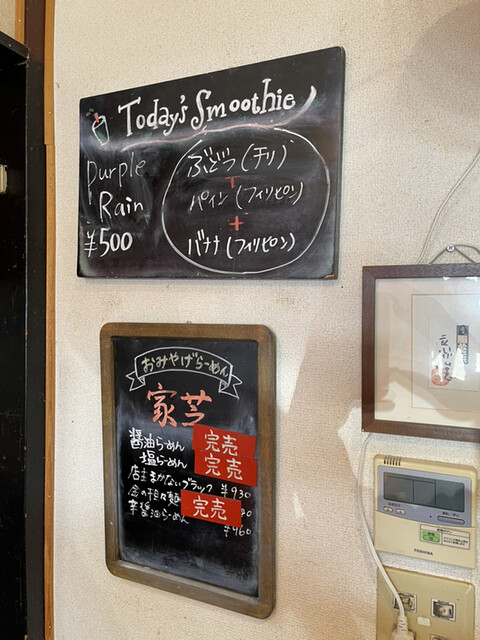 Today's Smoothie
Purple
Rain
¥500
ぶどう(チリ)
+
パイン(フィリピン)
+
バナナ(フィリピン)
おみやげらーめん
家芝
醤油らーめん 完売
塩らーめん 完売
店主まかないブラック ¥930
金の担々麺 完売
辛醤油らーめん
¥460
TOSHIBA